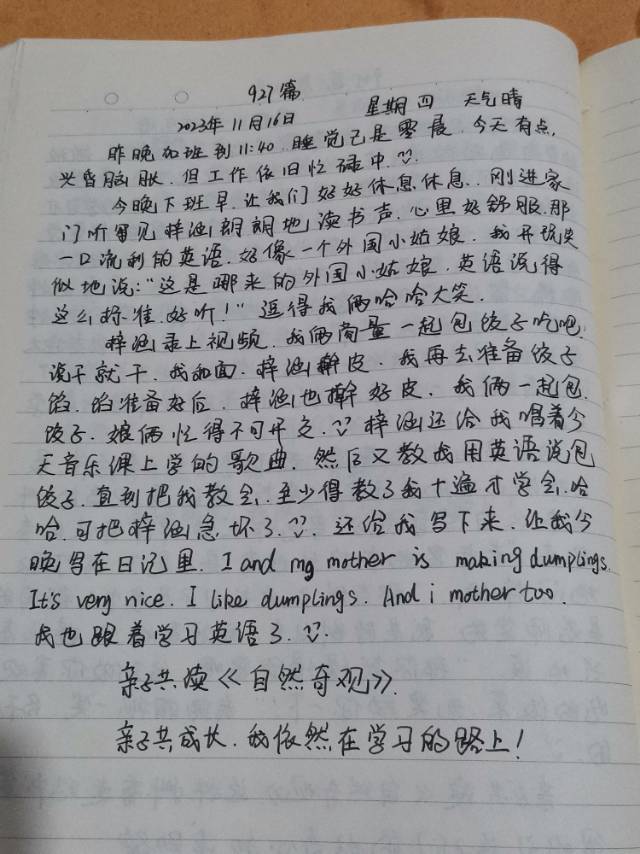 927篇
2023年11月16日 星期四 天气晴
昨晚加班到11:40.睡觉已是零晨.今天有点,
头昏脑胀.但工作依旧忙碌中.
今晚下班早.让我们好好休息休息..刚进家
门听见梓涵朗朗地读书声.心里好舒服.那
一口流利的英语.好像一个外国小姑娘.我开玩笑
似地说:“这是哪来的外国小姑娘.英语说得
这么标准.好听!”逗得我俩哈哈大笑.
梓涵录上视频.我俩商量一起包饺子吃吧.
说干就干.我和面.梓涵擀皮.我再去准备饺子
馅.馅准备好后.梓涵也擀好皮.我俩一起包
饺子.娘俩忙得不可开交.梓涵还给我唱着今
天音乐课上学的歌曲.然后又教我用英语说包
饺子.直到把我教会.至少得教了我十遍才学会.哈
哈.可把梓涵急坏了.还给我写下来.让我今
晚写在日记里. I and my mother is making dumplings.
It's very nice. I like dumplings. And i mother too.
我也跟着学习英语了.
亲子共读《自然奇观》.
亲子共成长.我依然在学习的路上!